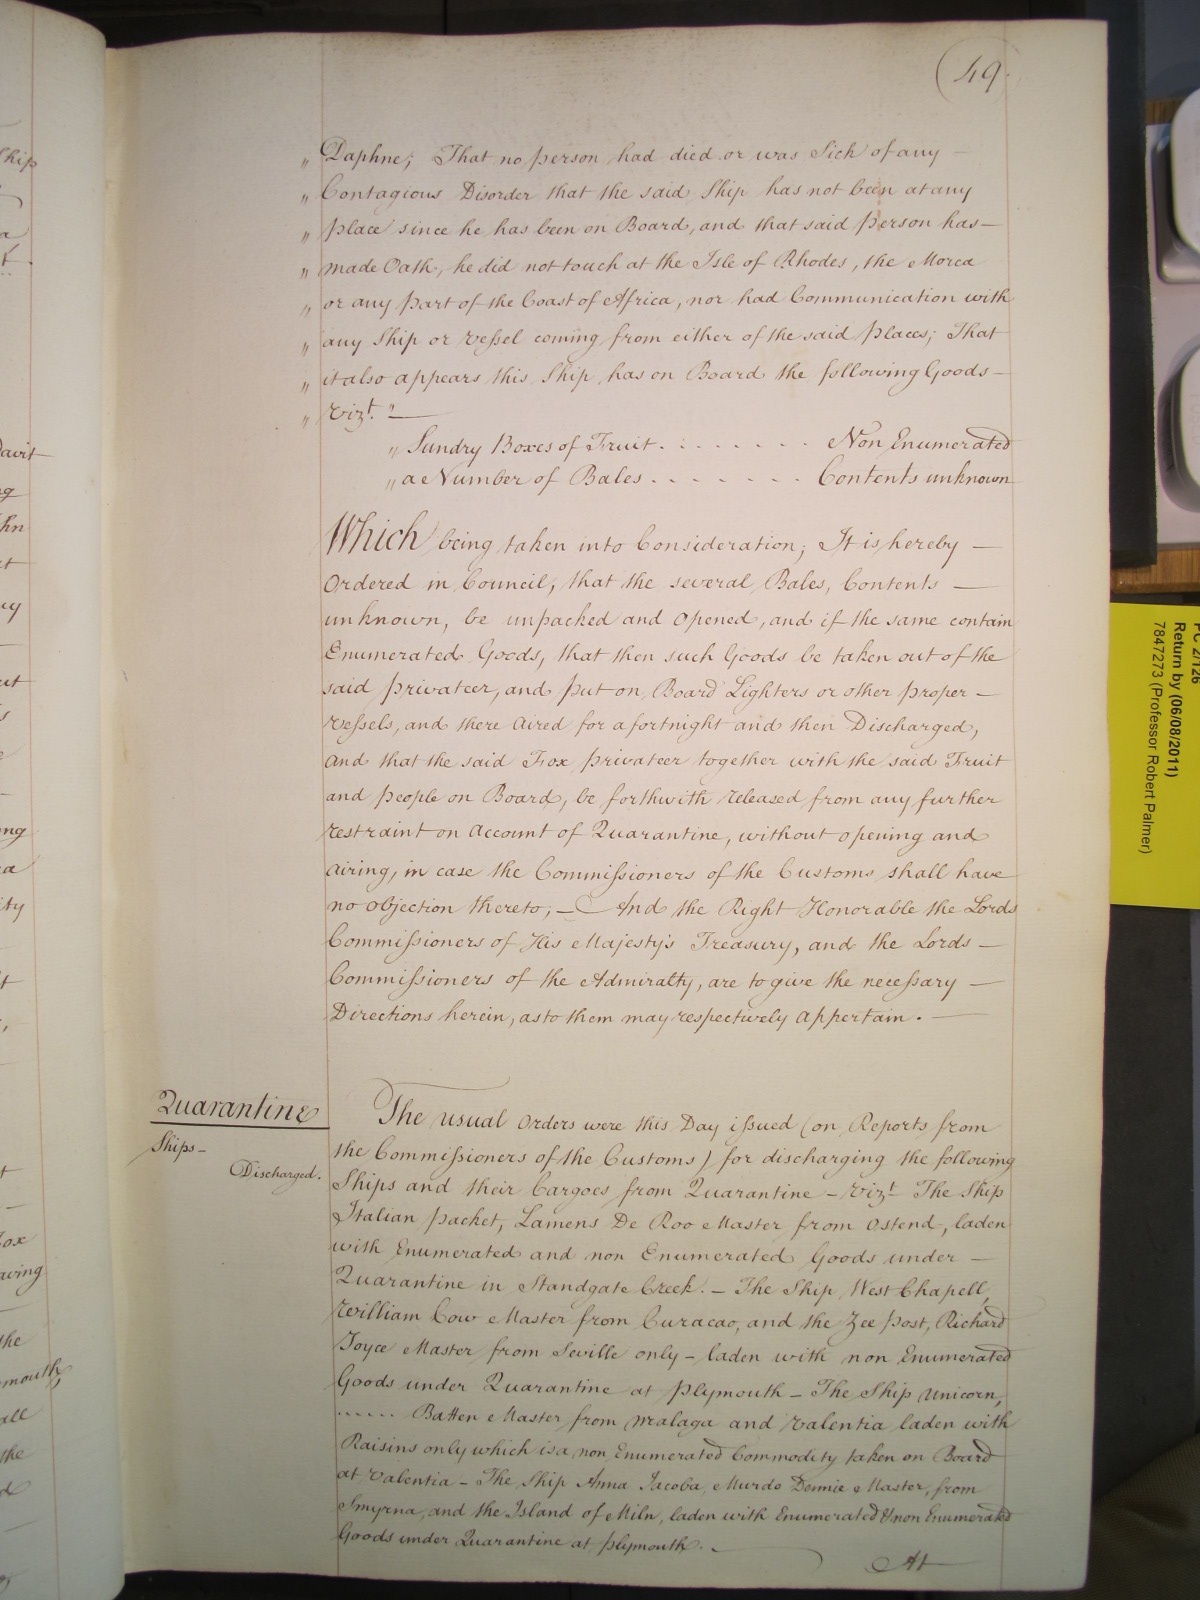 (49.
„ Daphne; That no person had died or was Sick of any —
„ Contagious Disorder that the said Ship has not been at any
„ place since he has been on Board, and that said person has —
„ made Oath, he did not touch at the Isle of Rhodes, the Morea
„ or any part of the Coast of Africa, nor had Communication with
„ any Ship or Vessel coming from either of the said places; That
„ it also appears this Ship has on Board the following Goods —
„ Vizt. " —
„ Sundry Boxes of Fruit . . . . . . . Non Enumerated
„ a Number of Bales . . . . . . . Contents unknown
Which being taken into Consideration; It is hereby —
Ordered in Council, that the several Bales, Contents —
unknown, be unpacked and opened, and if the same contain
Enumerated Goods, that then such Goods be taken out of the
said privateer, and put on Board Lighters or other proper —
Vessels, and there Aired for a fortnight and then Discharged,
and that the said Fox privateer together with the said Fruit
and people on Board, be forthwith released from any further
restraint on Account of Quarantine, without opening and
airing, in case the Commissioners of the Customs shall have
no objection thereto; — And the Right Honorable the Lords
Commissioners of His Majesty's Treasury, and the Lords —
Commissioners of the Admiralty, are to give the necessary —
Directions herein, as to them may respectively appertain. —
Quarantine
Ships —
Discharged.
The usual Orders were this Day issued (on Reports from
the Commissioners of the Customs) for discharging the following
Ships and their Cargoes from Quarantine — Vizt The Ship
Italian packet, Lamens De Roo Master from Ostend, laden
with Enumerated and non Enumerated Goods under —
Quarantine in Standgate Creek. — The Ship West Chapell,
William Cow Master from Curacao, and the Zee post, Richard
Joyce Master from Seville only — laden with non Enumerated
Goods under Quarantine at plymouth — The Ship Unicorn,
...... Batten Master from Malaga and Valentia laden with
Raisins only which is a non Enumerated Commodity taken on Board
at Valentia — The Ship Anna Jacoba, Murdo Dennie Master, from
Smyrna, and the Island of Miln, laden with Enumerated & non Enumerated
Goods under Quarantine at plymouth. —
At
PC 2/126
Return by (06/08/2011)
7847273 (Professor Robert Palmer)